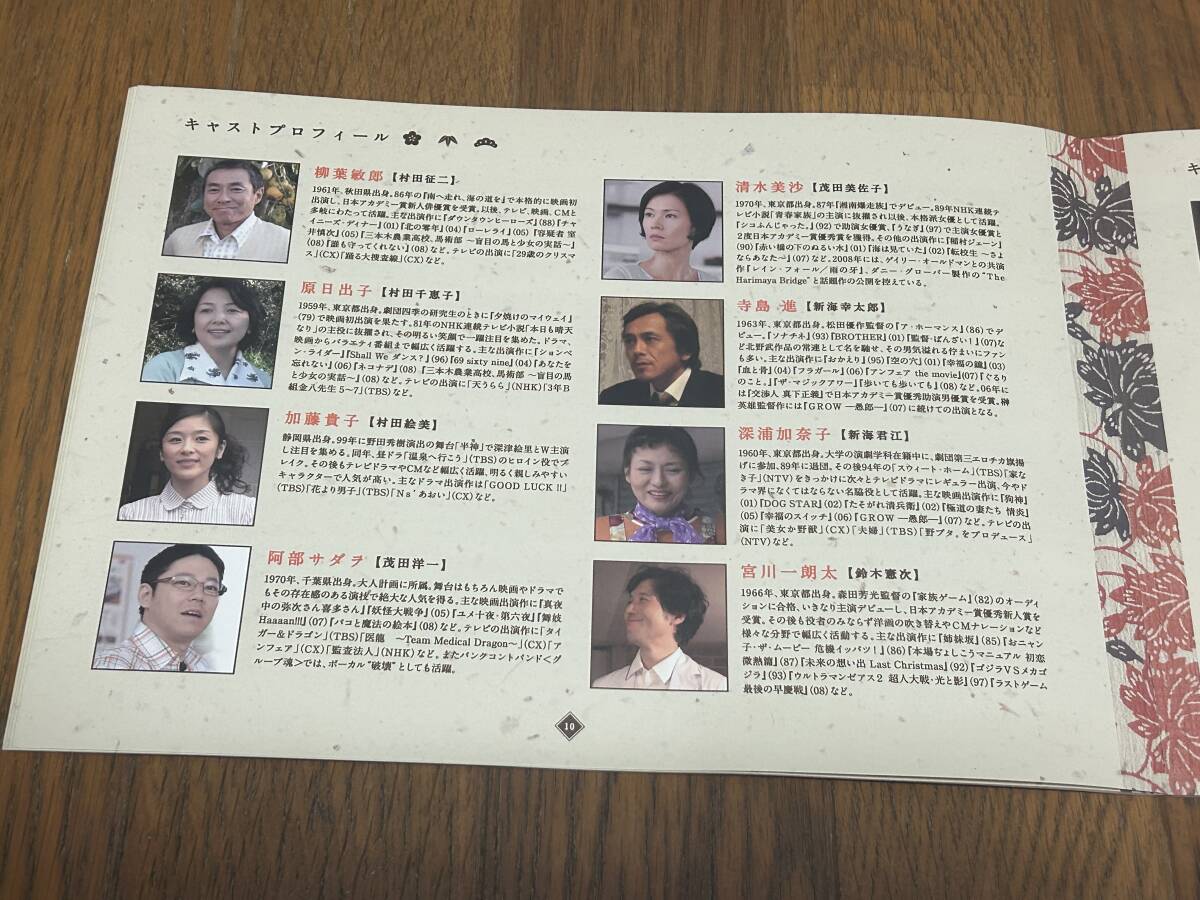 キャストプロフィール
柳葉敏郎【村田征二】
1961年、秋田県出身。86年の『南へ走れ、海の道を』で本格的に映画初
出演し、日本アカデミー賞新人俳優賞を受賞。以後、テレビ、映画、CMと
多岐にわたって活躍。主な出演作に『ダウンタウンヒーローズ』(88)『チャ
イニーズ・ディナー』(01)『北の零年』(04)『ローレライ』(05)『容疑者 室
井慎次』(05)『三本木農業高校、馬術部 ～盲目の馬と少女の実話～』
(08)『誰も守ってくれない』(08)など。テレビの出演に「29歳のクリスマ
ス」(CX)「踊る大捜査線」(CX)など。
原日出子【村田千恵子】
1959年、東京都出身。劇団四季の研究生のときに『夕焼けのマイウェイ』
(79)で映画初出演を果たす。81年のNHK連続テレビ小説「本日も晴天
なり」の主役に抜擢され、その明るい笑顔で一躍注目を集めた。ドラマ、
映画からバラエティ番組まで幅広く活躍する。主な出演作に『ションベ
ン・ライダー』『Shall We ダンス？』(96)『69 sixty nine』(04)『あなたを
忘れない』(06)『ネコナデ』(08)『三本木農業高校、馬術部 ～盲目の馬
と少女の実話～』(08)など。テレビの出演に「天うらら」(NHK)「3年B
組金八先生5～7」(TBS)など。
加藤貴子【村田絵美】
静岡県出身。99年に野田秀樹演出の舞台「半神」で深津絵里とW主演
し注目を集める。同年、昼ドラ「温泉へ行こう」(TBS)のヒロイン役でブ
レイク。その後もテレビドラマやCMなど幅広く活躍、明るく親しみやすい
キャラクターで人気が高い。主なドラマ出演作は「GOOD LUCK!!」
(TBS)「花より男子」(TBS)「Ns'あおい」(CX)など。
阿部サダヲ【茂田洋一】
1970年、千葉県出身。大人計画に所属。舞台はもちろん映画やドラマで
もその存在感のある演技で絶大な人気を得る。主な映画出演作に『真夜
中の弥次さん喜多さん』『妖怪大戦争』(05)『ユメ十夜・第六夜』『舞妓
Haaaan!!!』(07)『パコと魔法の絵本』(08)など。テレビの出演に「タイ
ガー&ドラゴン」(TBS)「医龍 ～Team Medical Dragon～」(CX)「ア
ンフェア」(CX)「監査法人」(NHK)など。またパンクコントバンド＜グ
ループ魂＞では、ボーカル“破壊”としても活躍。
清水美沙【茂田美佐子】
1970年、東京都出身。87年『湘南爆走族』でデビュー。89年NHK連続テ
レビ小説「青春家族」の主演に抜擢され以後、本格派女優として活躍。
『シコふんじゃった。』(92)で助演女優賞、『うなぎ』(97)で主演女優賞と
2度日本アカデミー賞優秀賞を獲得。その他の出演作に『稲村ジェーン』
(90)『赤い橋の下のぬるい水』(01)『海は見ていた』(02)『転校生 ～さよ
ならあなた～』(07)など。2008年には、ゲイリー・オールドマンとの共演
作『レイン・フォール／雨の牙』、ダニー・グローバー製作の“The
Harimaya Bridge”と話題作の公開を控えている。
寺島 進【新海幸太郎】
1963年、東京都出身。松田優作監督の『ア・ホーマンス』(86)でデ
ビュー。『ソナチネ』(93)『BROTHER』(01)『監督・ばんざい！』(07)な
ど北野武作品の常連として名を馳せ、その男気溢れる佇まいにファン
も多い。主な出演作に『おかえり』(95)『空の穴』(01)『幸福の鐘』(03)
『血と骨』(04)『フラガール』(06)『アンフェア the movie』(07)『ぐるり
のこと。』『ザ・マジックアワー』『歩いても歩いても』(08)など。06年に
は『交渉人 真下正義』で日本アカデミー賞優秀助演男優賞を受賞。榊
英雄監督作には『GROW ―愚郎―』(07)に続けての出演となる。
深浦加奈子【新海君江】
1960年、東京都出身。大学の演劇学科在籍中に、劇団第三エロチカ旗揚
げに参加、89年に退団。その後94年の「スウィート・ホーム」(TBS)「家な
き子」(NTV)をきっかけに次々とテレビドラマにレギュラー出演、今やド
ラマ界になくてはならない名脇役として活躍。主な映画出演作に『狗神』
(01)『DOG STAR』(02)『たそがれ清兵衛』(02)『極道の妻たち 情炎』
(05)『幸福のスイッチ』(06)『GROW ―愚郎―』(07)など。テレビの出
演に「美女か野獣」(CX)「夫婦」(TBS)「野ブタ。をプロデュース」
(NTV)など。
宮川一朗太【鈴木憲次】
1966年、東京都出身。森田芳光監督の『家族ゲーム』(82)のオーディ
ションに合格、いきなり主演デビューし、日本アカデミー賞優秀新人賞を
受賞。その後も役者のみならず洋画の吹き替えやCMナレーションなど
様々な分野で幅広く活動する。主な出演作に『姉妹坂』(85)『おニャン
子・ザ・ムービー 危機イッパツ！』(86)『本場ぢょしこうマニュアル 初恋
微熱篇』(87)『未来の想い出 Last Christmas』(92)『ゴジラVSメカゴ
ジラ』(93)『ウルトラマンゼアス2 超人大戦・光と影』(97)『ラストゲーム
最後の早慶戦』(08)など。
10